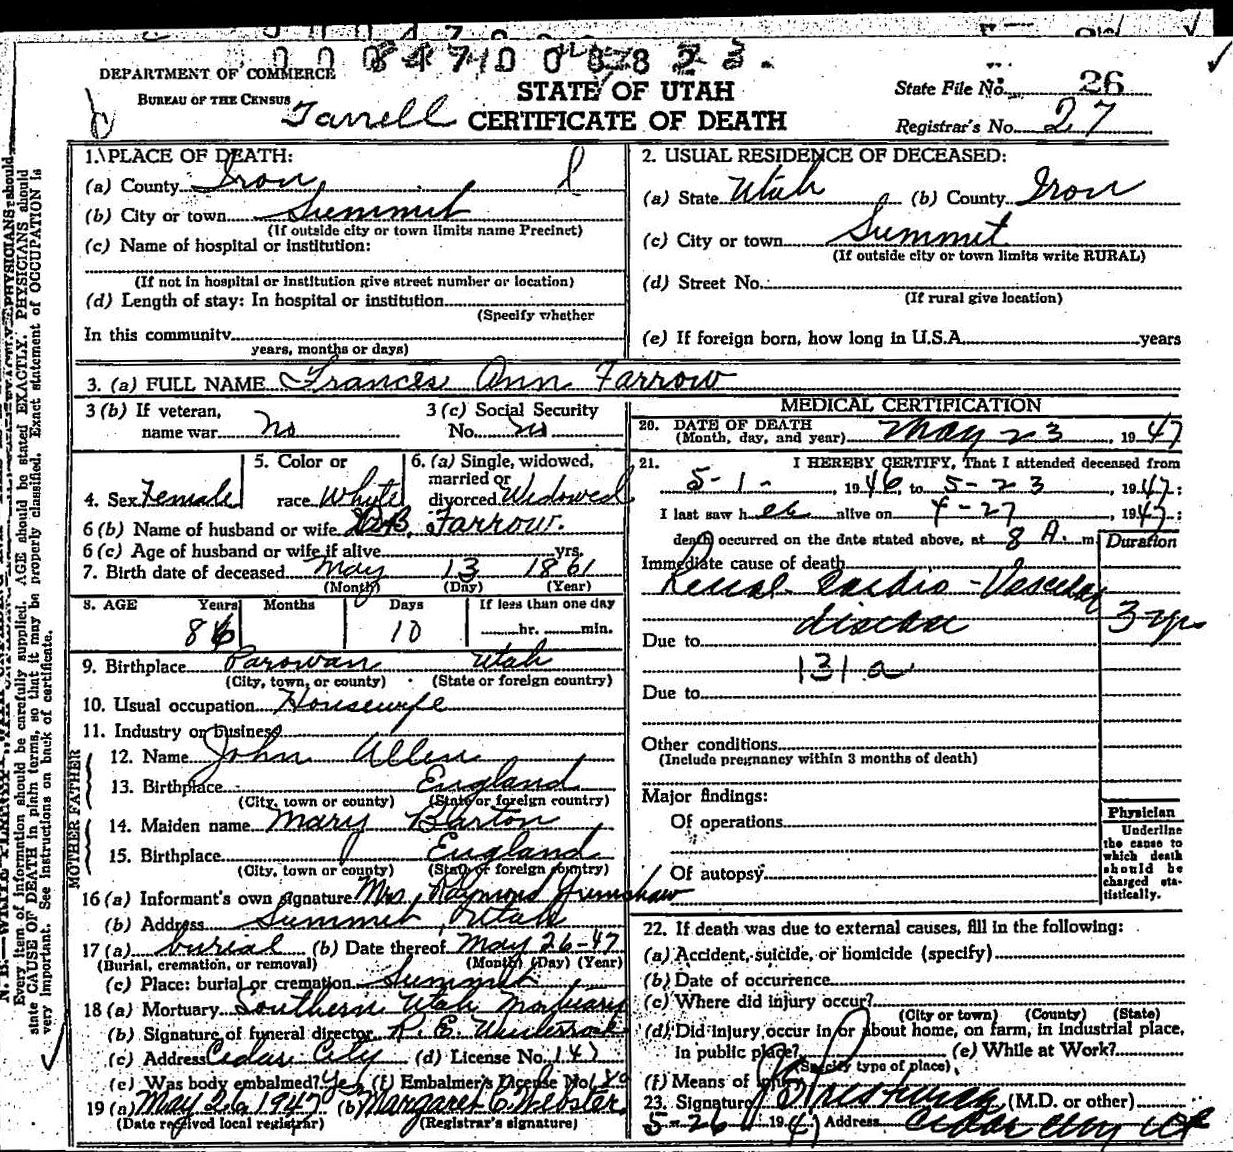 DEPARTMENT OF COMMERCE
BUREAU OF THE CENSUS
STATE OF UTAH
CERTIFICATE OF DEATH
State File No. 26
Registrar's No. 27
1. PLACE OF DEATH:
(a) County Iron
(b) City or town Summit
(If outside city or town limits name Precinct)
(c) Name of hospital or institution:
(If not in hospital or institution give street number or location)
(d) Length of stay: In hospital or institution
(Specify whether
In this community
years, months or days)
2. USUAL RESIDENCE OF DECEASED:
(a) State Utah (b) County Iron
(c) City or town Summit
(If outside city or town limits write RURAL)
(d) Street No.
(If rural give location)
(e) If foreign born, how long in U.S.A. years
3. (a) FULL NAME Frances Ann Farrow
3 (b) If veteran, name war no
3 (c) Social Security No. no
4. Sex Female
5. Color or race White
6. (a) Single, widowed, married or divorced Widowed
6 (b) Name of husband or wife Farrow.
6 (c) Age of husband or wife if alive yrs.
7. Birth date of deceased May 13 1861
(Month) (Day) (Year)
8. AGE Years Months Days If less than one day
86 10 hr. min.
9. Birthplace Parowan Utah
(City, town, or county) (State or foreign country)
10. Usual occupation Housewife
11. Industry or business
FATHER
12. Name John Allen
13. Birthplace England
(City, town or county) (State or foreign country)
MOTHER
14. Maiden name Mary Barton
15. Birthplace England
(City, town or county) (State or foreign country)
16 (a) Informant's own signature Mrs. Raymond Grimshaw
(b) Address Summit, Utah
17 (a) burial (b) Date thereof May 26-47
(Burial, cremation, or removal) (Month) (Day) (Year)
(c) Place: burial or cremation Summit
18 (a) Mortuary Southern Utah Mortuary
(b) Signature of funeral director R. E.
(c) Address Cedar City (d) License No. 147
(e) Was body embalmed? Yes (f) Embalmer's License No.
19 (a) May 26 1947 (b) Margaret C Webster
(Date received local registrar) (Registrar's signature)
MEDICAL CERTIFICATION
20. DATE OF DEATH
(Month, day, and year) May 23, 1947
21. I HEREBY CERTIFY, That I attended deceased from
5-1-, 1946, to 5-23, 1947;
I last saw her alive on 4-27, 1947;
death occurred on the date stated above, at 8 A. m.
Duration
Immediate cause of death
Renal Cardio-Vascular
disease 3 yrs
Due to
131 a
Due to
Other conditions
(Include pregnancy within 3 months of death)
Major findings:
Of operations
Of autopsy
Physician
Underline the cause to which death should be charged statistically.
22. If death was due to external causes, fill in the following:
(a) Accident, suicide, or homicide (specify)
(b) Date of occurrence
(c) Where did injury occur?
(City or town) (County) (State)
(d) Did injury occur in or about home, on farm, in industrial place,
in public place? (e) While at Work?
(Specify type of place)
(f) Means of injury
23. Signature (M.D. or other)
5-26 1947 Address Cedar City Ut
Every item of information should be carefully supplied. AGE should be stated EXACTLY. PHYSICIANS should
state CAUSE OF DEATH in plain terms, so that it may be properly classified. Exact statement of OCCUPATION is
very important. See instructions on back of certificate.